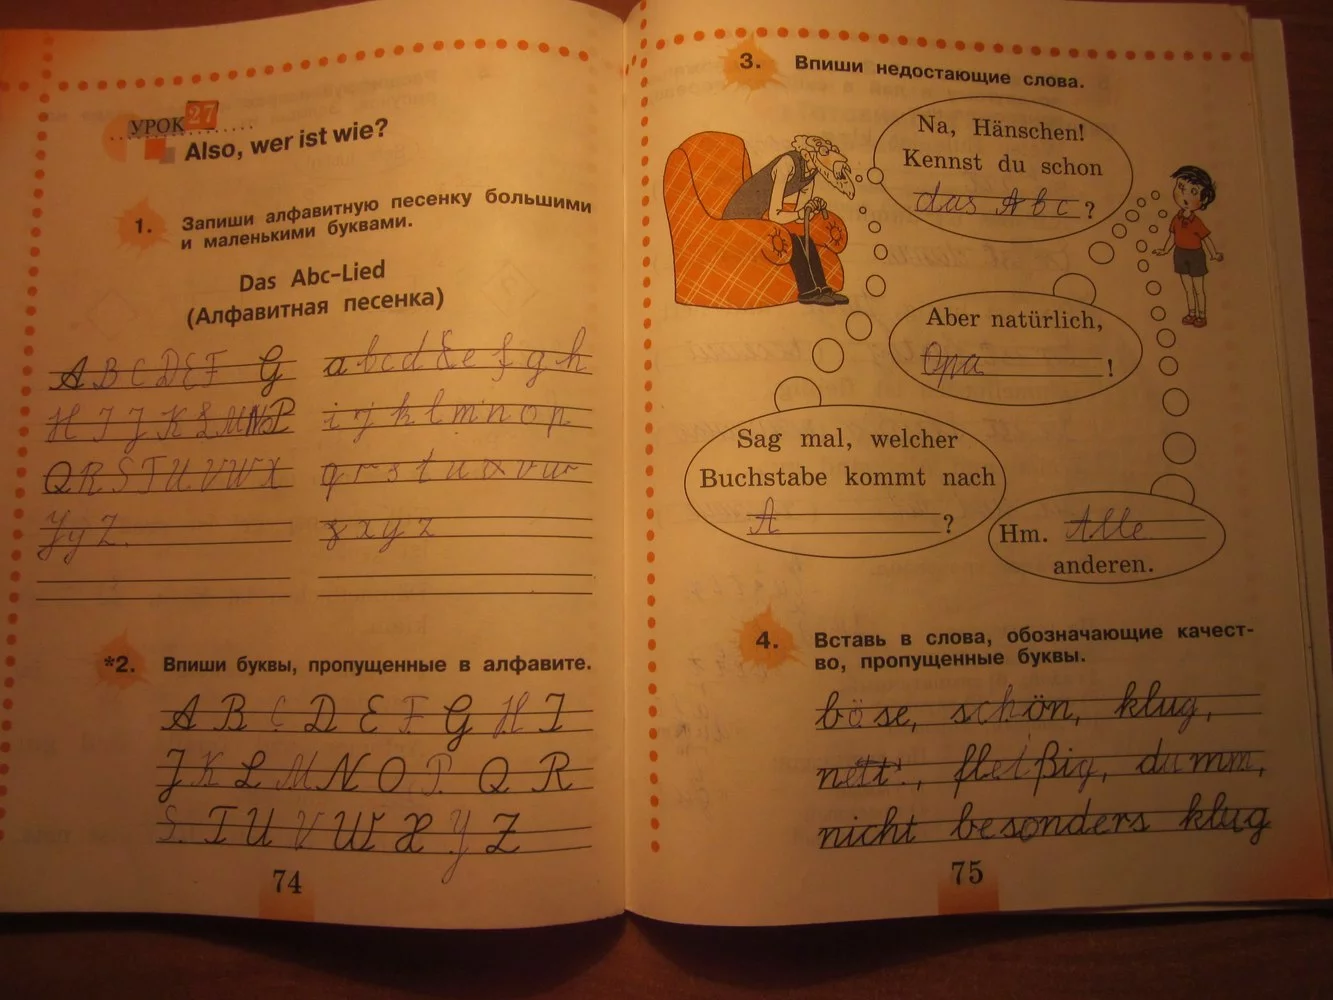 УРОК 27
Also, wer ist wie?
1. Запиши алфавитную песенку большими
и маленькими буквами.
Das Abc-Lied
(Алфавитная песенка)
A B C D E F G
H I J K L M N O P
Q R S T U V W X
Y y Z.
a b c d E e f g h
i j k l m n o p
q r s t u x v w
x y z
*2. Впиши буквы, пропущенные в алфавите.
A B C D E F G H I
J K L M N O P Q R
S T U V W X Y Z
74
3. Впиши недостающие слова.
Na, Hänschen!
Kennst du schon
das Abc ?
Aber natürlich,
Opa !
Sag mal, welcher
Buchstabe kommt nach
A ?
Hm. Alle
anderen.
4. Вставь в слова, обозначающие качест-
во, пропущенные буквы.
böse, schön, klug,
nett, fleißig, dumm,
nicht besonders klug
75